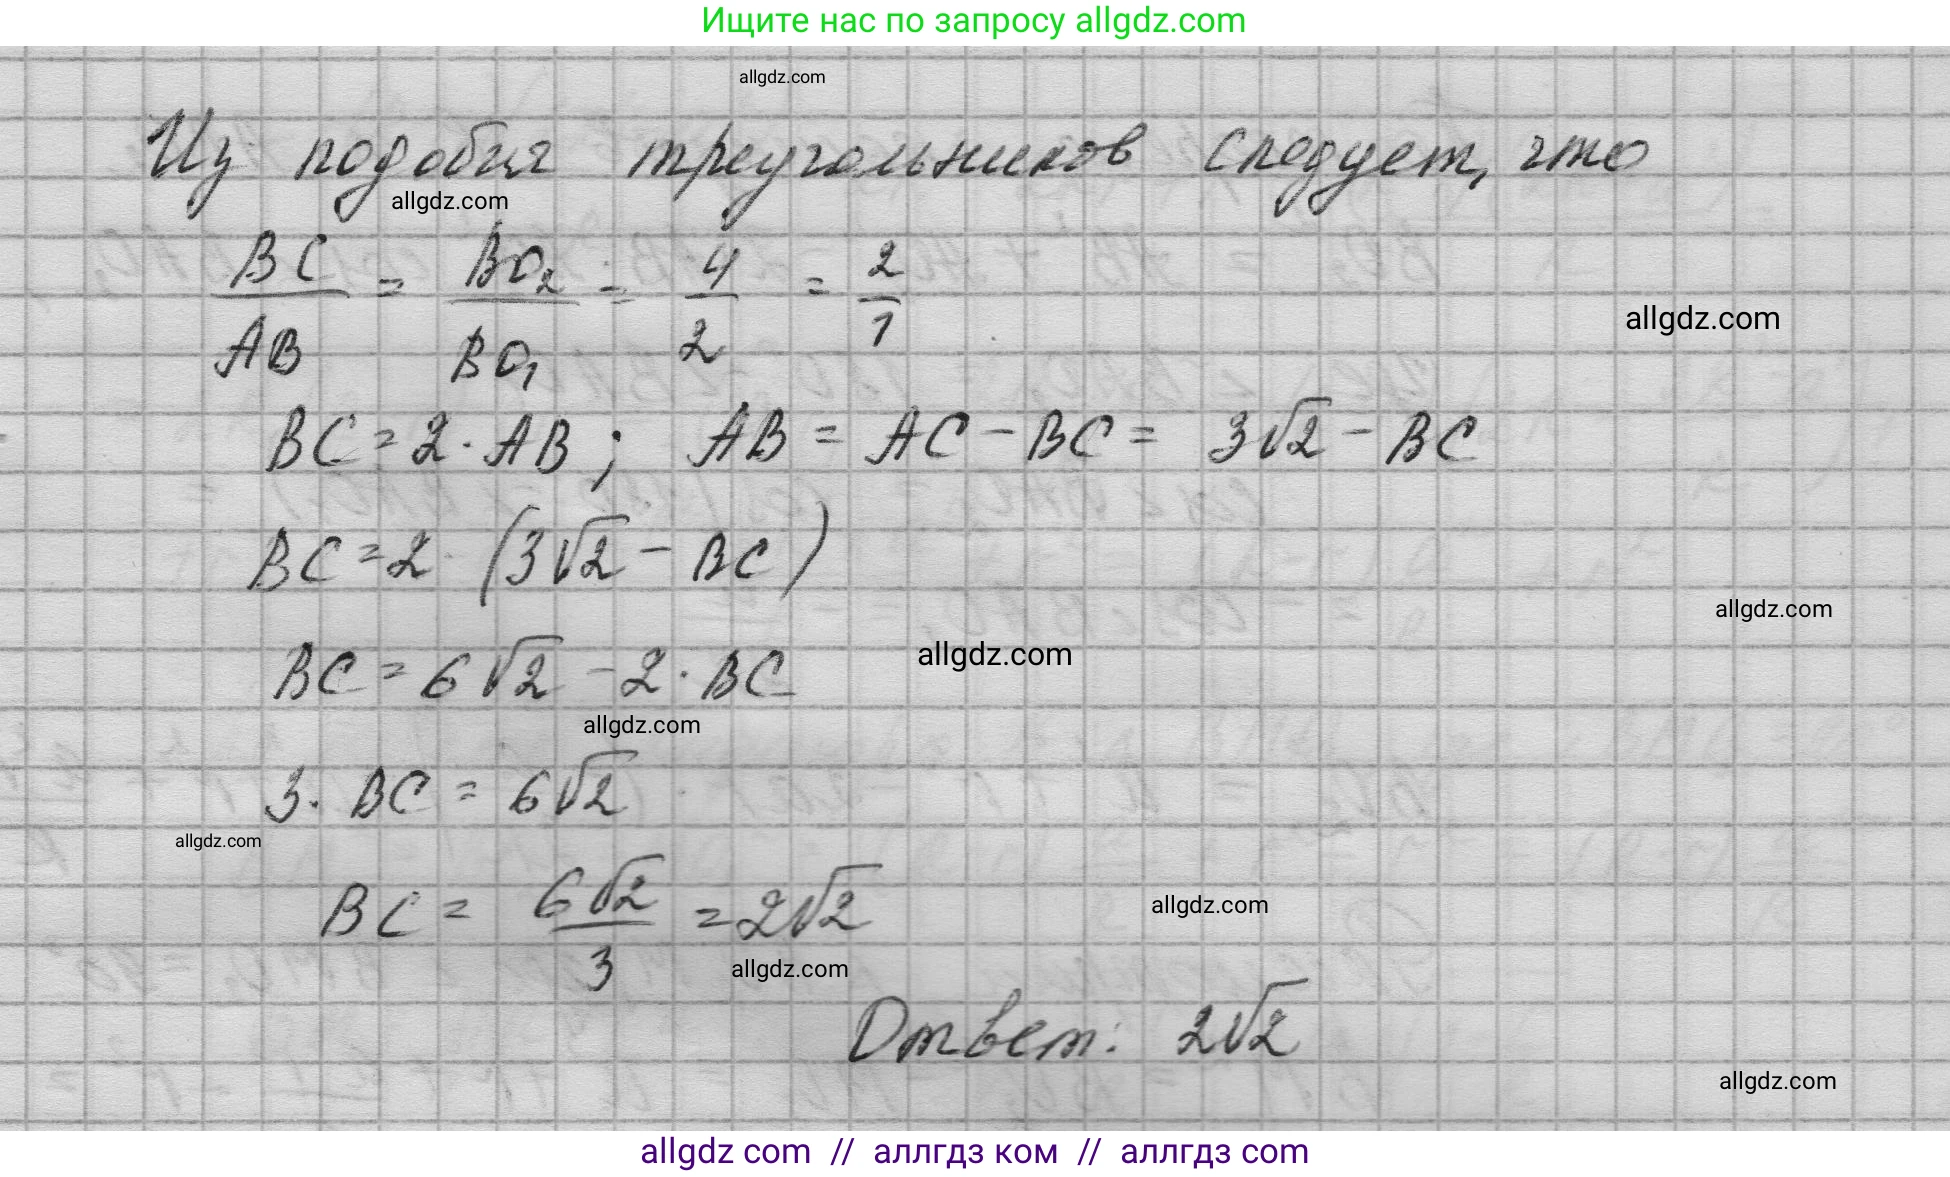 Ищите нас по запросу allgdz.com
allgdz.com
Из подобия треугольников следует, что
allgdz.com
BC/AB = BO₂/BO₁ = 4/2 = 2/1
allgdz.com
BC = 2 · AB; AB = AC - BC = 3√2 - BC
BC = 2 · (3√2 - BC)
allgdz.com
allgdz.com
BC = 6√2 - 2 · BC
allgdz.com
3 · BC = 6√2
allgdz.com
BC = 6√2/3 = 2√2
allgdz.com
allgdz.com
Ответ: 2√2
allgdz.com
allgdz com // аллгдз ком // аллгдз com